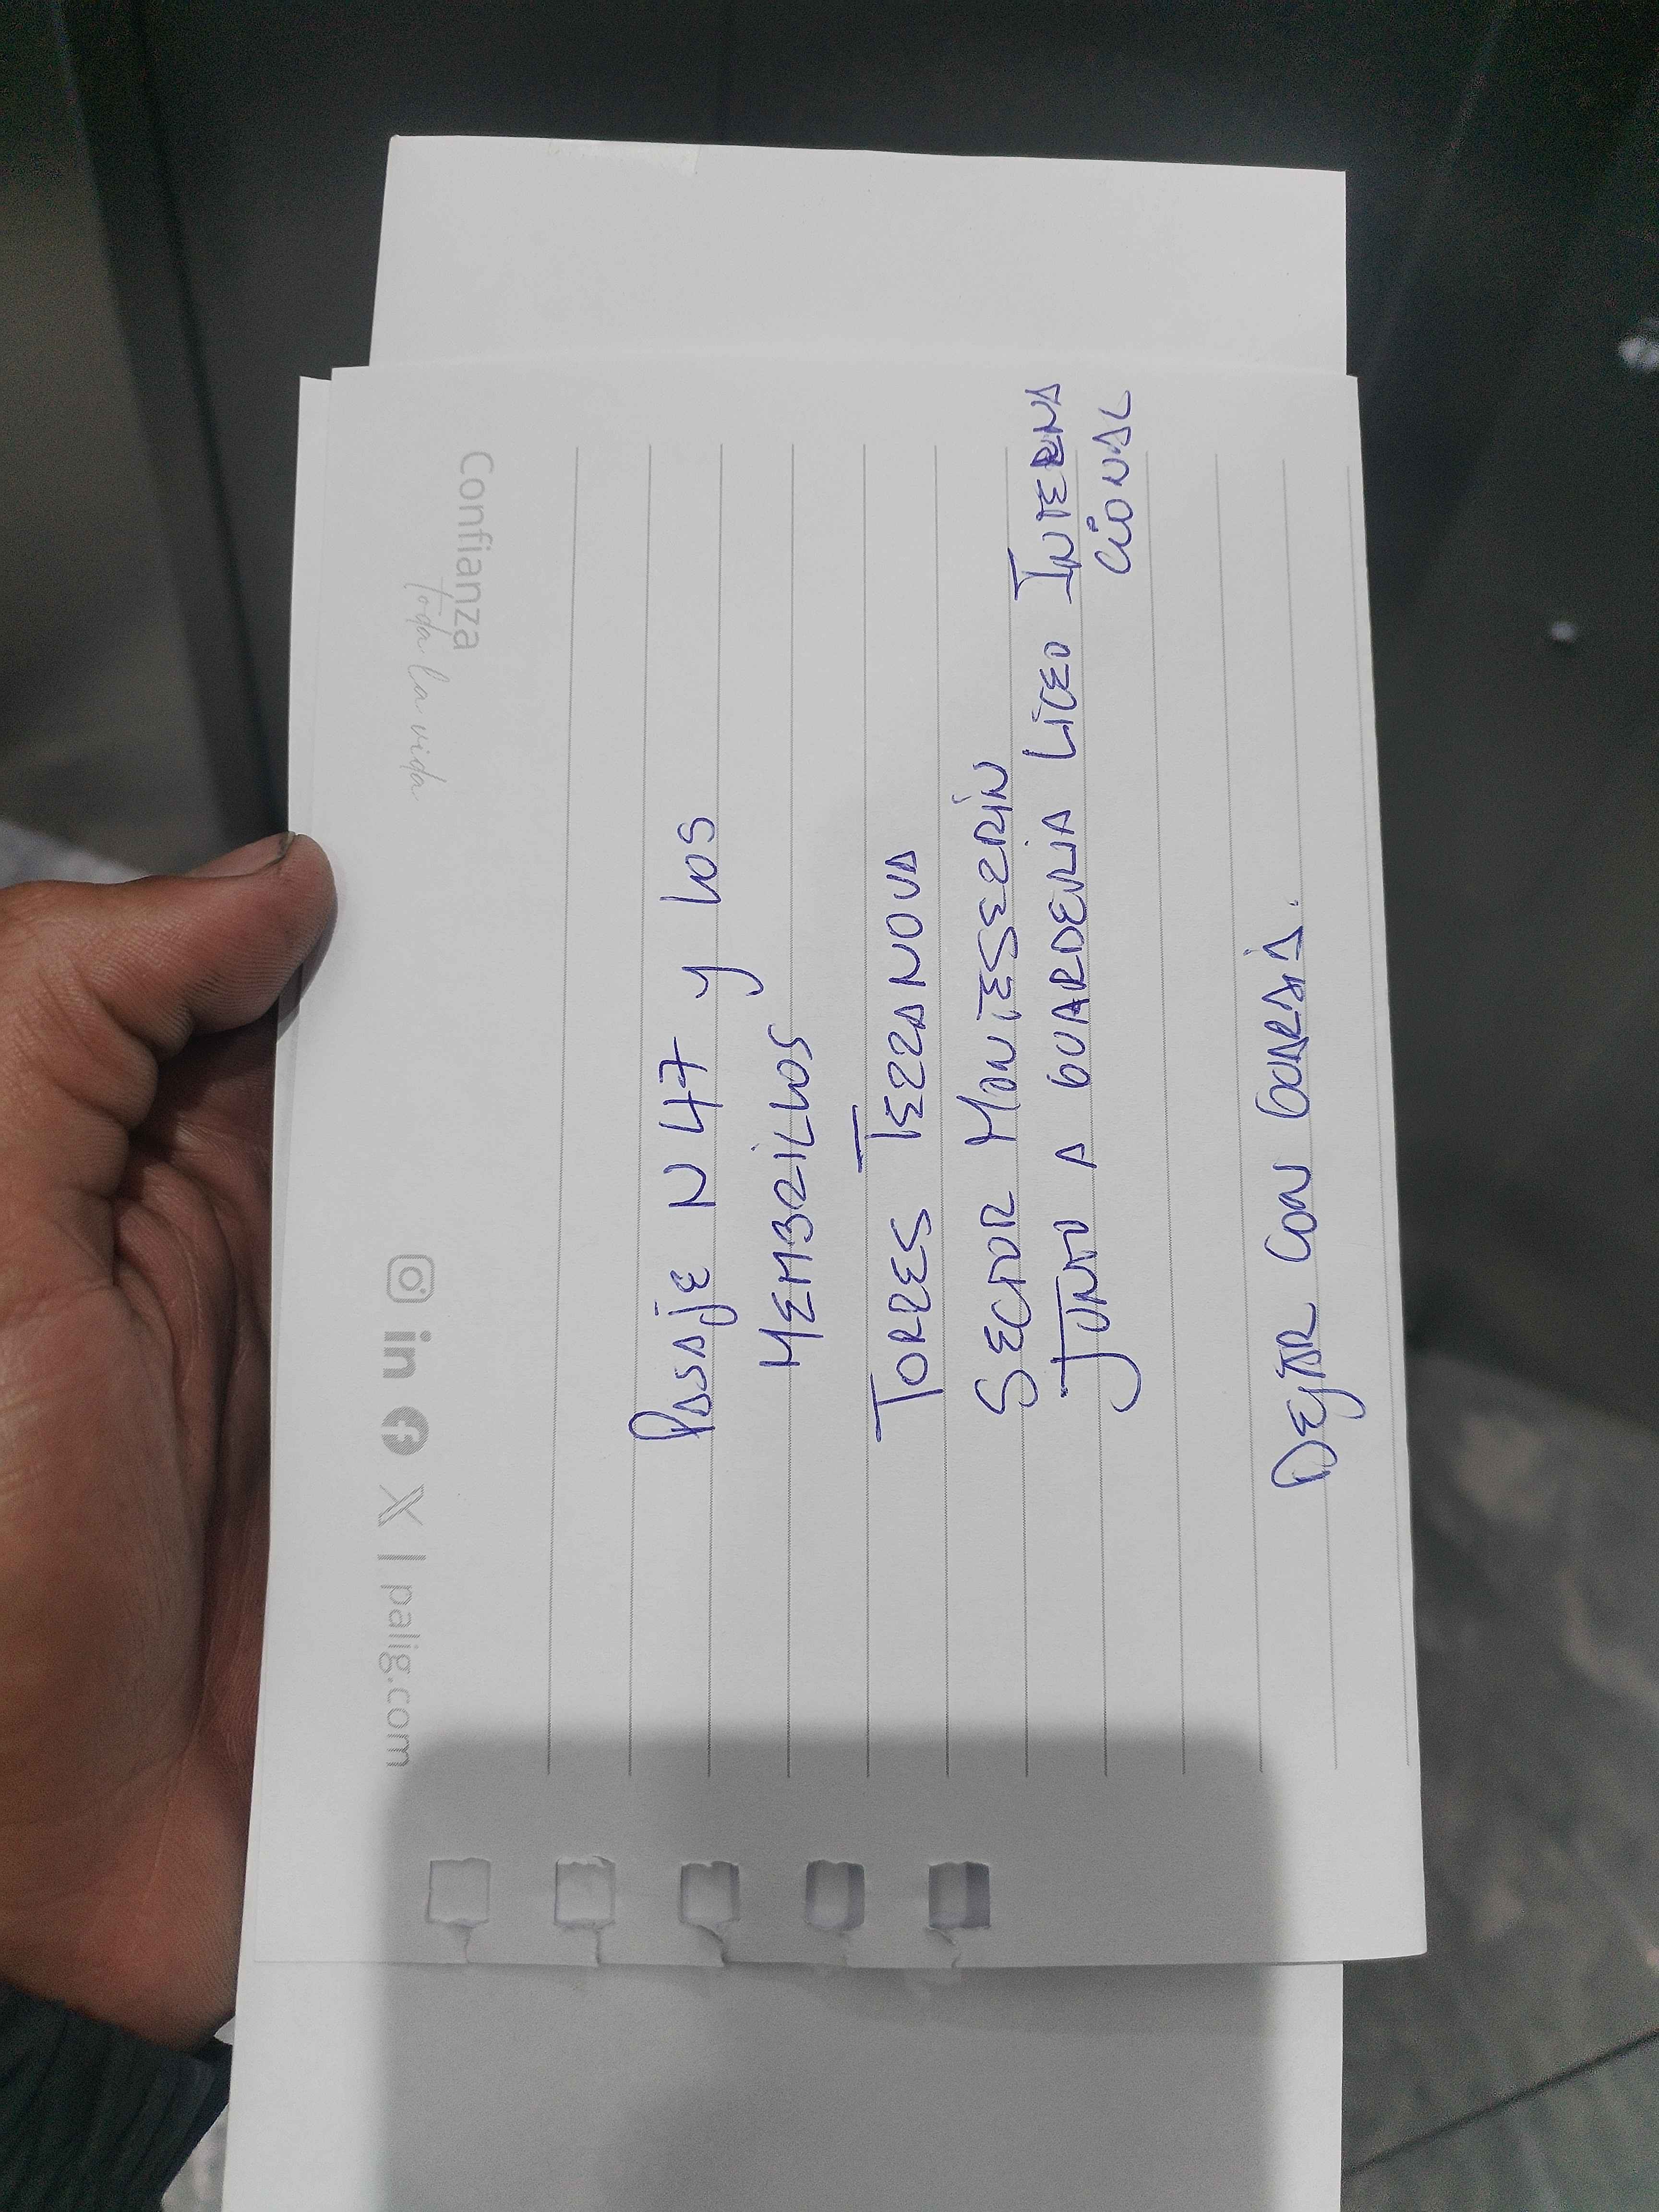 Pasaje N 47 y los
MEMBRILLOS
TORRES TERRANOVA
SECTOR MONTESERRÍN
JUNTO A GUARDERIA LICEO INTERNA
CIONAL
DEJAR CON GUARDIA.
Confianza
toda la vida
X | palig.com